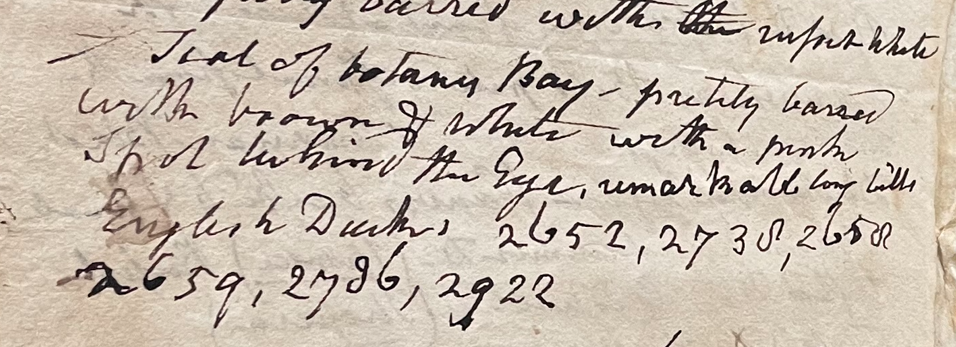 barred with the rufset white
Teal of botany Bay - pretily barred
with brown & white with a pink
Spot behind the Eye, remarkable long bills
English Ducks 2652, 2738, 2658
2659, 2786, 2922